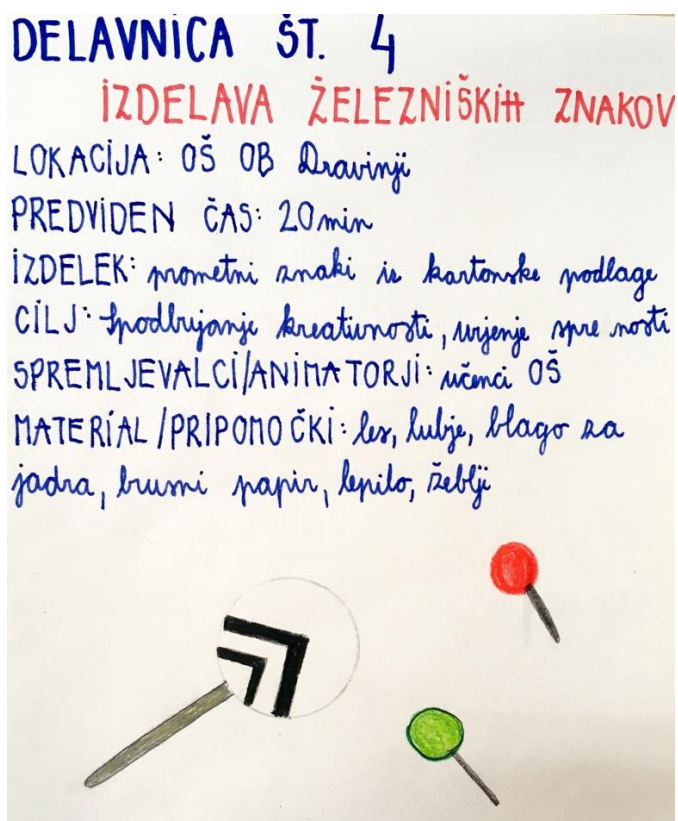 DELAVNICA ŠT. 4
IZDELAVA ŽELEZNIŠKIH ZNAKOV
LOKACIJA: OŠ OB Dravinji
PREDVIDEN ČAS: 20 min
IZDELEK: prometni znaki iz kartonske podlage
CILJ: Spodbujanje kreativnosti, urjenje spre nosti
SPREMLJEVALCI/ANIMATORJI: učenci OŠ
MATERIAL/PRIPOMOČKI: les, lubje, blago za
jadra, brusni papir, lepilo, žeblji